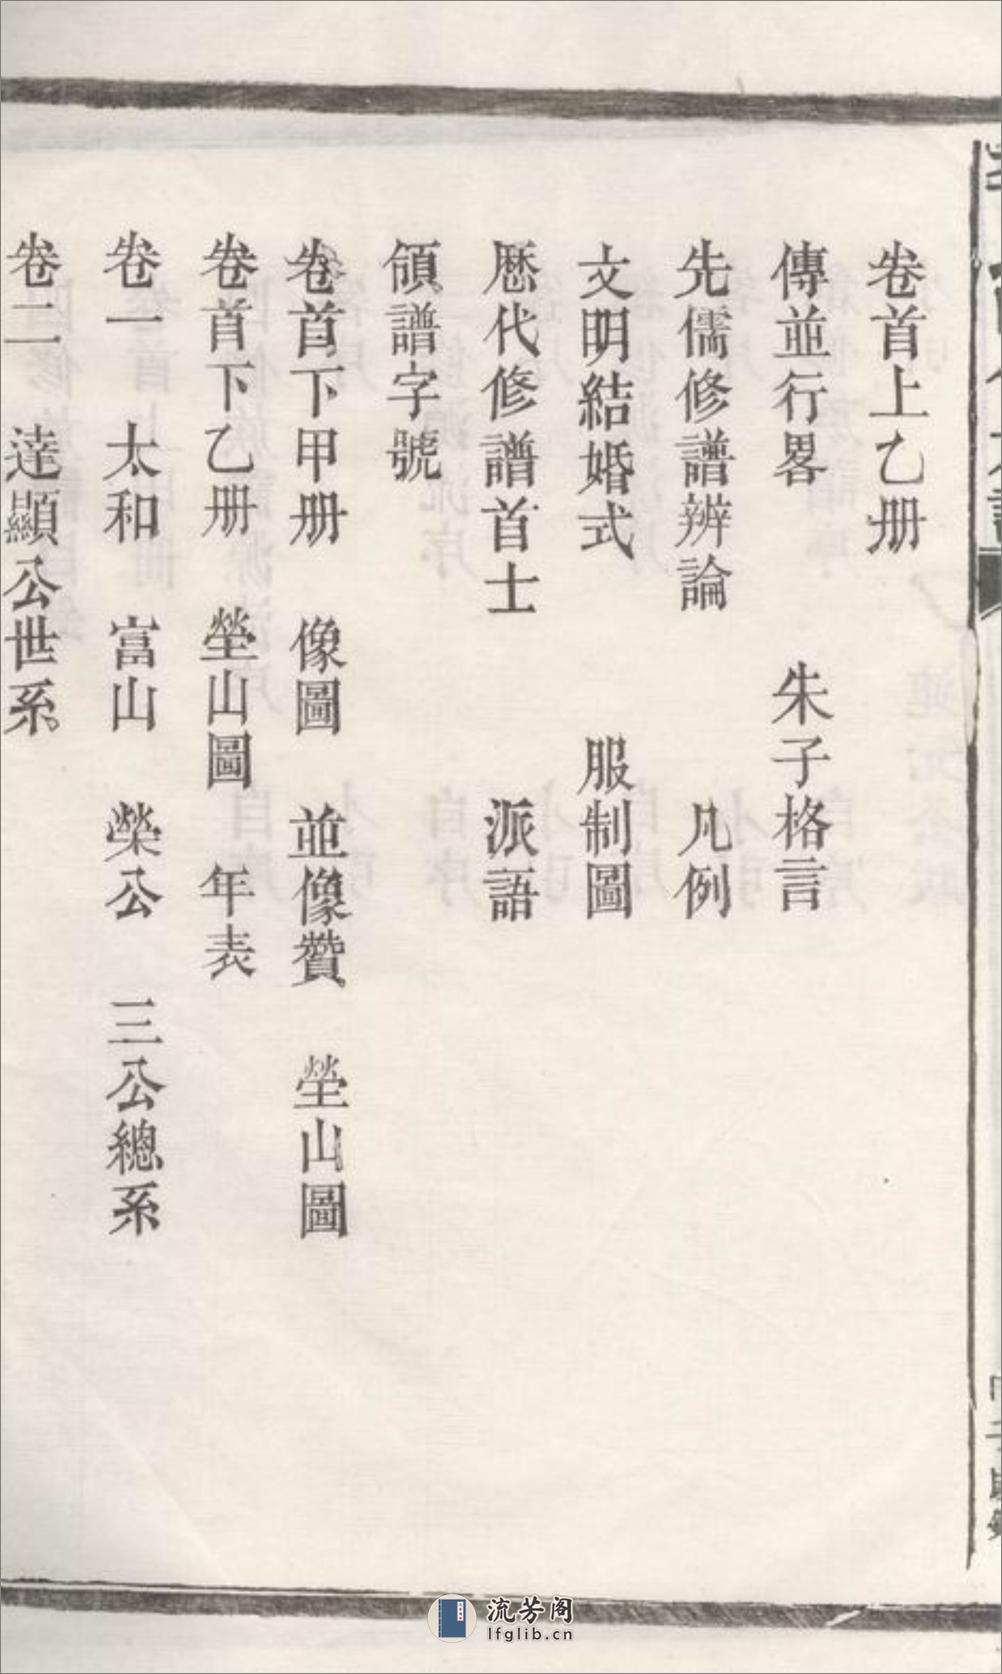 卷首上乙册
傳並行畧 朱子格言
先儒修譜辨論 凡例
文明結婚式 服制圖
歷代修譜首士 派語
領譜字號
卷首下甲册 像圖 並像贊 塋山圖
卷首下乙册 塋山圖 年表
卷一 太和 富山 榮公 三公總系
卷二 達顯公世系
流芳阁
lfglib.cn